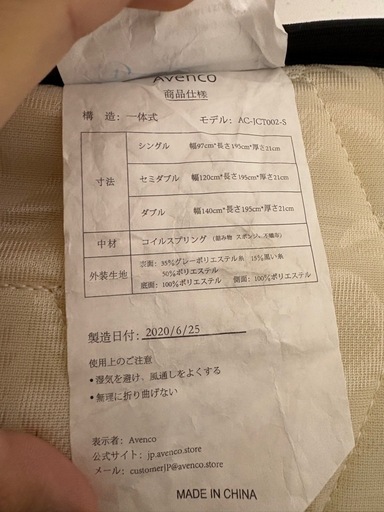 Avenco
商品仕様
構 造: 一体式 モデル: AC-JCT002-S
寸法
シングル 幅97cm*長さ195cm*厚さ21cm
セミダブル 幅120cm*長さ195cm*厚さ21cm
ダブル 幅140cm*長さ195cm*厚さ21cm
中材 コイルスプリング (詰み物 スポンジ、不織布)
外装生地
表面: 35%グレーポリエステル糸 15%黒い糸
50%ポリエステル
底面: 100%ポリエステル 側面: 100%ポリエステル
製造日付: 2020/6/25
使用上のご注意
•湿気を避け、風通しをよくする
•無理に折り曲げない
表示者: Avenco
公式サイト: jp.avenco.store
メール: customerJP@avenco.store
MADE IN CHINA